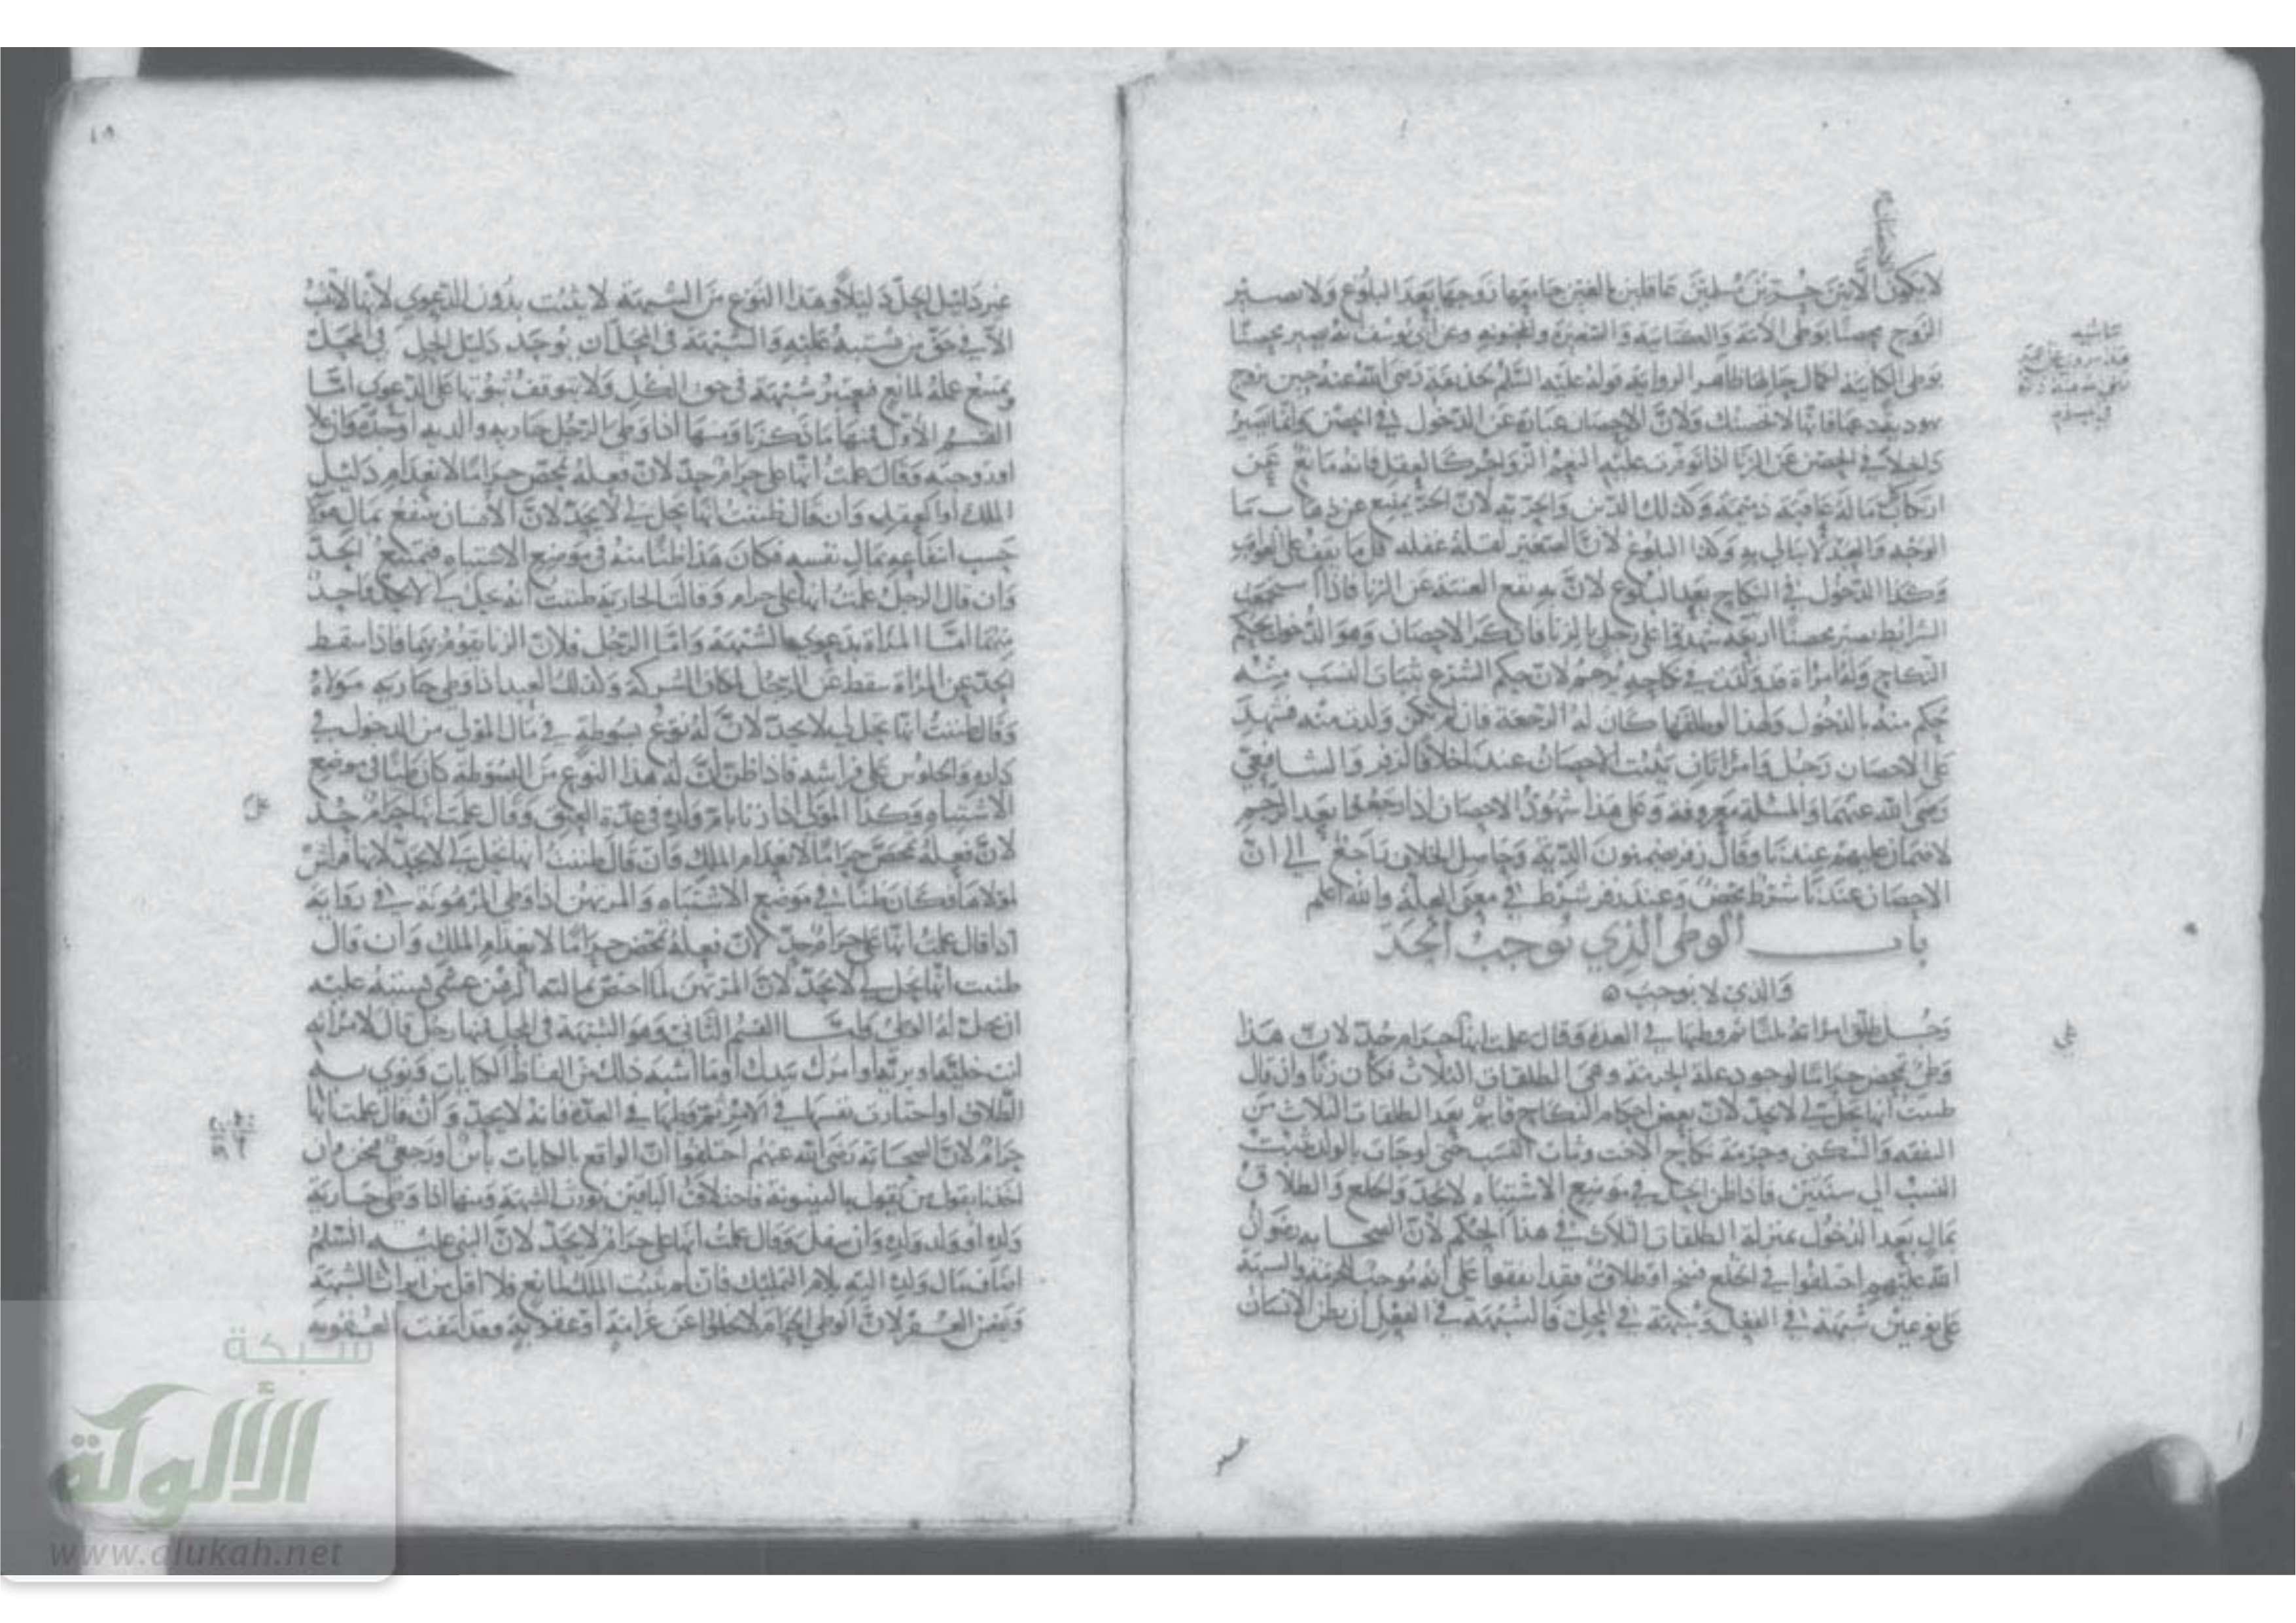 لا يكون الا بين حرين مسلمين عاقلين بالغين جامعها زوجها بعد البلوغ ولا يصير
الزوج محصنا بوطى الامة والكتابية والصغيرة والمجنونة وعن ابي يوسف انه يصير محصنا
بوطى الكتابية لكمال حالها ظاهر الرواية قوله عليه السلم لحذيفة رضي الله عنه حين تزوج
يهودية دعها فانها لا تحصنك ولان الاحصان عبارة عن الدخول في الحصن وانما يصير
داخلا في الحصن عن الزنا اذا توفرت عليه النعم الزواجر كالعقل فانه مانع عن
ارتكاب ما له عاقبة ذميمة وكذلك الدين والحرية لان الحر يمتنع عن ذهاب ما
الوجه والعبد لا يبالي به وكذا البلوغ لان الصغير لقلة عقله قل ما يقف على العواقب
وكذا الدخول في النكاح بعد البلوغ لان به يقع الغنية عن الزنا فاذا استجمعت
الشرايط يصير محصنا اربعة شهدوا على رجل بالزنا فانكر الاحصان وهو الدخول بحكم
النكاح وله امراة قد ولدت في نكاحه يرجم لان حكم الشرع بثبات النسب منه
حكم منه بالدخول ولهذا لو طلقها كان له الرجعة فان لم تكن ولدت منه فشهد
على الاحصان رجل وامراتان يثبت الاحصان عندنا خلافا لزفر والشافعي
رضى الله عنهما والمسئلة معروفة وعلى هذا شهود الاحصان اذا رجعوا بعد الرجم
لا ضمان عليهم عندنا وقال زفر يضمنون الدية وحاصل الخلاف راجع الى ان
الاحصان عندنا شرط محض وعند زفر شرط في معنى العلة والله اعلم
باب الوطى الذي يوجب الحد
والذي لا يوجب
رجل طلق امراته ثلثا ثم وطيها في العدة وقال علمت انها حرام حد لان هذا
وطى تمحض حراما لوجود علة الحرمة وهي الطلقات الثلاث فكان زنا وان قال
ظننت انها تحل لي لا يحد لان بعض احكام النكاح قايم بعد الطلقات الثلاث من
النفقة والسكنى وحرمة نكاح الاخت وثبات النسب حتى لو جات بالولد يثبت
النسب الى سنتين فاذا ظن الحل في موضع الاشتباه لا يحد والخلع والطلاق
بمال بعد الدخول بمنزلة الطلقات الثلاث في هذا الحكم لان الصحابه رضوان
الله عليهم اختلفوا في الخلع فسخ او طلاق فقد اتفقوا على انه موجب للحرمة والشبهة
على نوعين شبهة في الفعل وشبهة في المحل فالشبهة في الفعل ان يظن الانسان
غير دليل الحل دليلا وهذا النوع من الشبهة لا يثبت بدون الدعوى لانها لا تثبت
الا في حق من يشتبه عليه والشبهة في المحل ان يوجد دليل الحل في المحل
ويمتنع عمله لمانع فيعتبر شبهة في حق الكل ولا يتوقف ثبوتها على الدعوى اما
القسم الاول فمنها ما ذكرنا ومنها اذا وطى الرجل جارية والديه
او زوجته وقال علمت انها علي حرام حد لان فعله تمحض حراما لانعدام دليل
الملك او الحل وان قال ظننت انها تحل لي لا يحد لان الانسان ينتفع بمال
حسب انتفاعه بمال نفسه فكان هذا ظنا منه في موضع الاشتباه فيمتنع الحد
وان قال الرجل علمت انها علي حرام وقالت الجارية ظننت انه يحل لي لا يحد واحد
منهما اما المراة بدعوى الشبهة واما الرجل فلان الزنا يقوم بهما فاذا سقط
الحد عن المراة سقط عن الرجل لمكان الشركة وكذلك العبد اذا وطى جارية مولاه
وقال ظننت انها تحل لي لا يحد لان له نوع بسوطة في مال المولى من الدخول في
داره والجلوس على فراشه فاذا ظن ان له هذا النوع من البسوطة كان ظنا في موضع
الاشتباه وكذا المولى اذا زنا بام ولده في عدة العتق وقال علمت انها حرام حد
لان فعله تمحض حراما لانعدام الملك وان قال ظننت انها تحل لي لا يحد لانها فراش
لمولاها فكان ظنا في موضع الاشتباه والمرتهن اذا وطى المرهونة في رواية
اذا قال علمت انها علي حرام حد لان فعله تمحض حراما لانعدام الملك وان قال
ظننت انها تحل لي لا يحد لان المرتهن لما اختص بمالية الرهن عسى يشتبه عليه
ان يحل له الوطى واما القسم الثاني وهو الشبهة في المحل فمنها رجل قال لامراته
انت خلية او برية او امرك بيدك او ما اشبه ذلك من الفاظ الكنايات ونوى به
الطلاق او اختارت نفسها في الامر ثم وطيها في العدة فانه لا يحد وان قال علمت انها
حرام لان الصحابة رضى الله عنهم اختلفوا ان الواقع بالكنايات باين او رجعي فنحن وان
اخذنا بقول من يقول بالبينونة فاختلاف الباقين يورث الشبهة ومنها اذا وطى جارية
ولده او ولد ولده وان سفل وقال علمت انها علي حرام لا يحد لان النبي عليه السلم
اضاف مال ولده اليه بلام التمليك فان لم يثبت الملك لمانع فلا اقل من ايراث الشبهة
ويضمن العقر لان الوطى الحرام لا يخلوا عن غرامة او عقوبة وقد انتفت العقوبة
شبكة
الألوكة
www.alukah.net